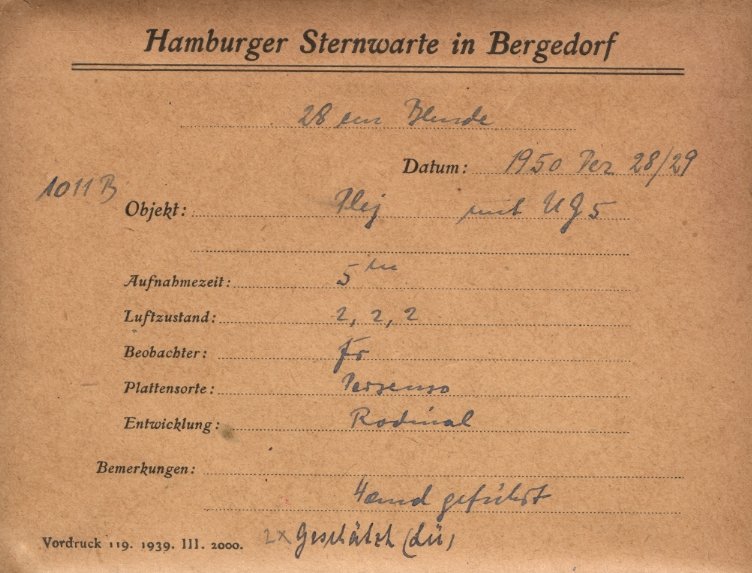 Hamburger Sternwarte in Bergedorf
28 cm Blende
Datum: 1950 Dez 28/29
1011 B
Objekt: Plej mit UG5
Aufnahmezeit: 5 m
Luftzustand: 2, 2, 2
Beobachter: Fr
Plattensorte: Persenso
Entwicklung: Rodinal
Bemerkungen:
Hand geführt
Vordruck 119. 1939. III. 2000. 2x Geschätzt (Lü)